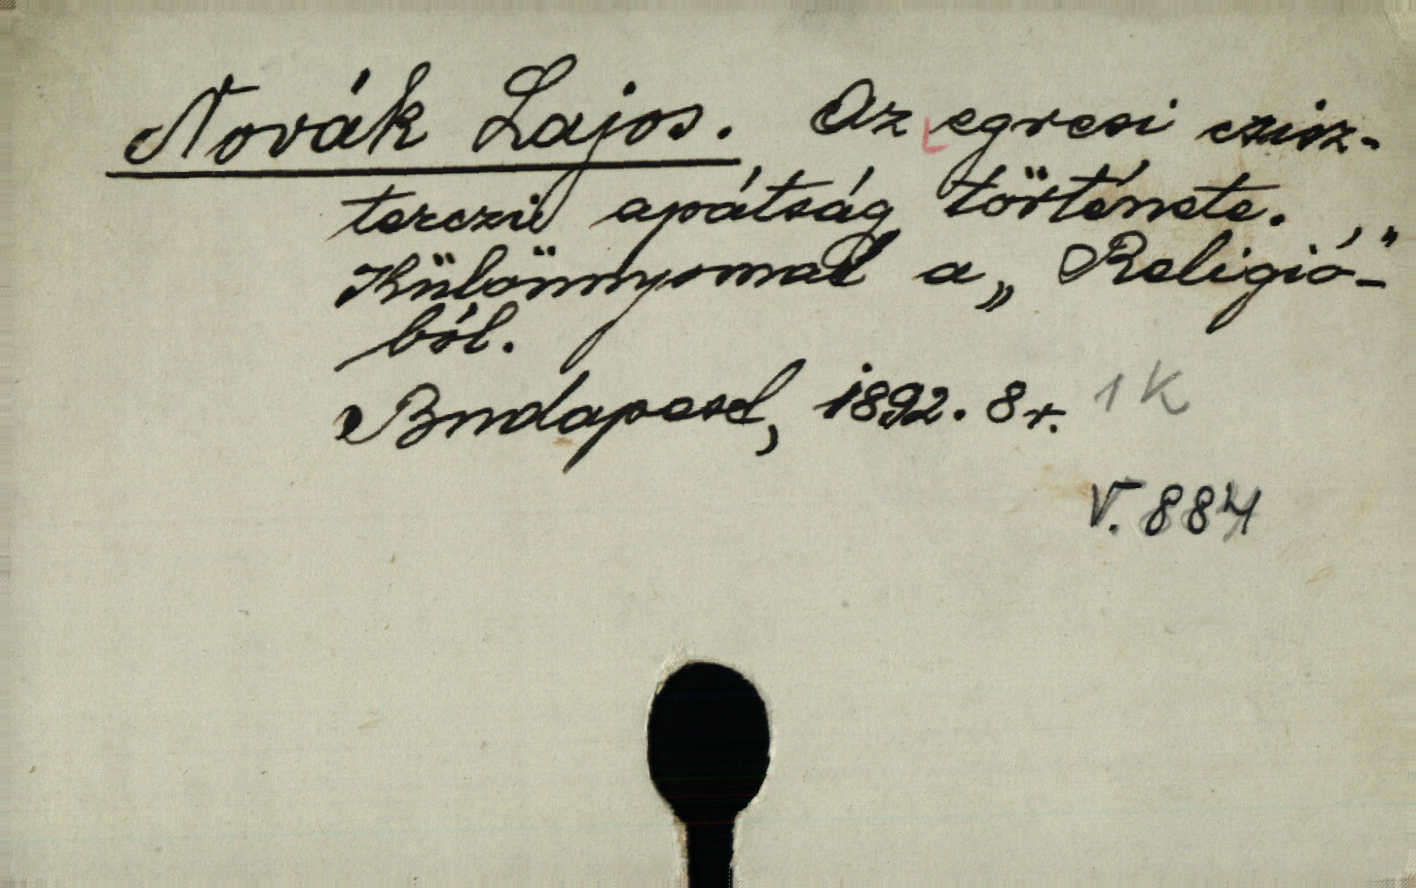 Novák Lajos. Az egresi czisz-
terczi apátság története.
Különnyomat a „Religió"-
ból.
Budapest, 1892. 8r. 1 K
V. 884